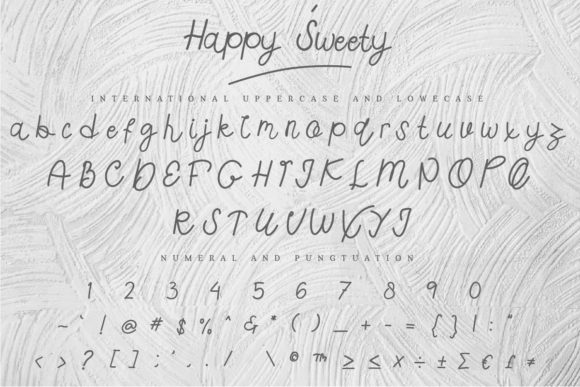 Happy Sweety
INTERNATIONAL UPPERCASE AND LOWECASE
a b c d e f g h i j k l m n o p q r s t u v w x y z
A B C D E F G H I J K L M N O P Q
R S T U V W X Y Z
NUMERAL AND PUNGTUATION
1 2 3 4 5 6 7 8 9 0
~ ` ! @ # $ % ^ & * ( ) _ + - = { } | : "
< > ? [ ] ; ' , . / \ © ™ ≥ ≤ × ÷ ± Σ € £ ≠